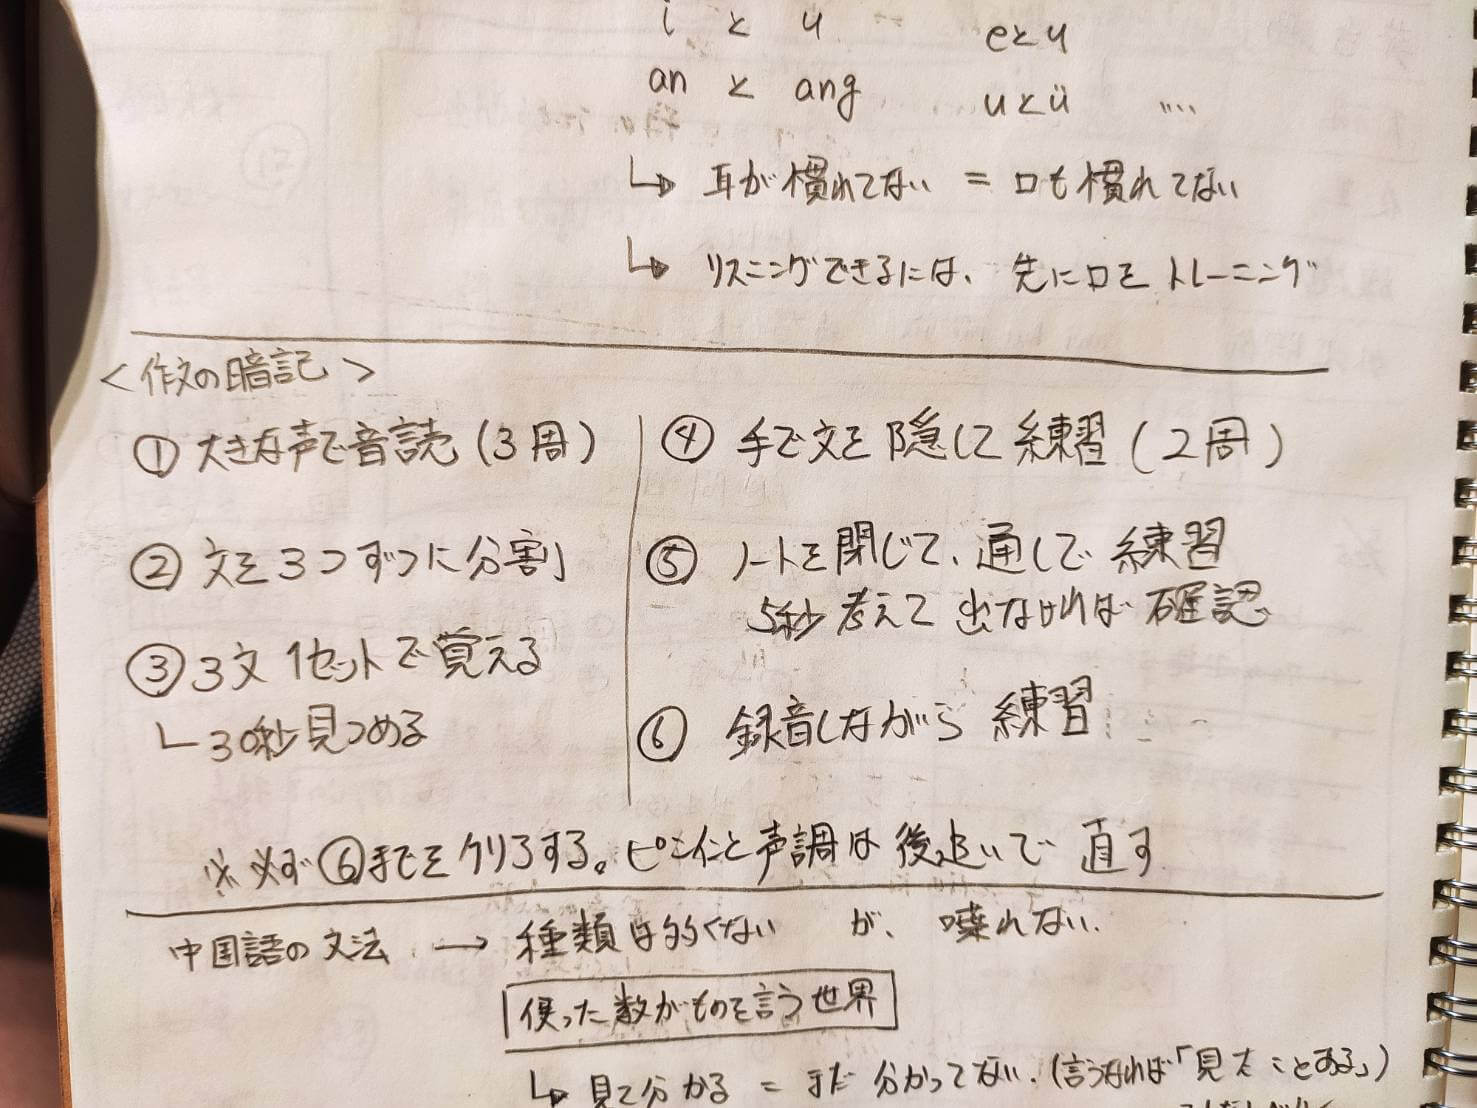 i と u eとu
an と ang uとü ....
↳ 耳が慣れてない = 口も慣れてない
↳ リスニングできるには、先に口をトレーニング
<作文の暗記>
① 大きな声で音読(3周)
② 文を3つずつに分割
③ 3文1セットで覚える
└ 30秒見つめる
④ 手で文を隠して練習(2周)
⑤ ノートを閉じて、通しで練習
5秒考えて出なければ確認
⑥ 録音しながら練習
※必ず⑥までをクリアする。ピンインと声調は後追いで直す
中国語の文法 → 種類は多くない が、喋れない.
使った数がものを言う世界
↳ 見て分かる = まだ分かってない.(言うなれば「見たことある」)